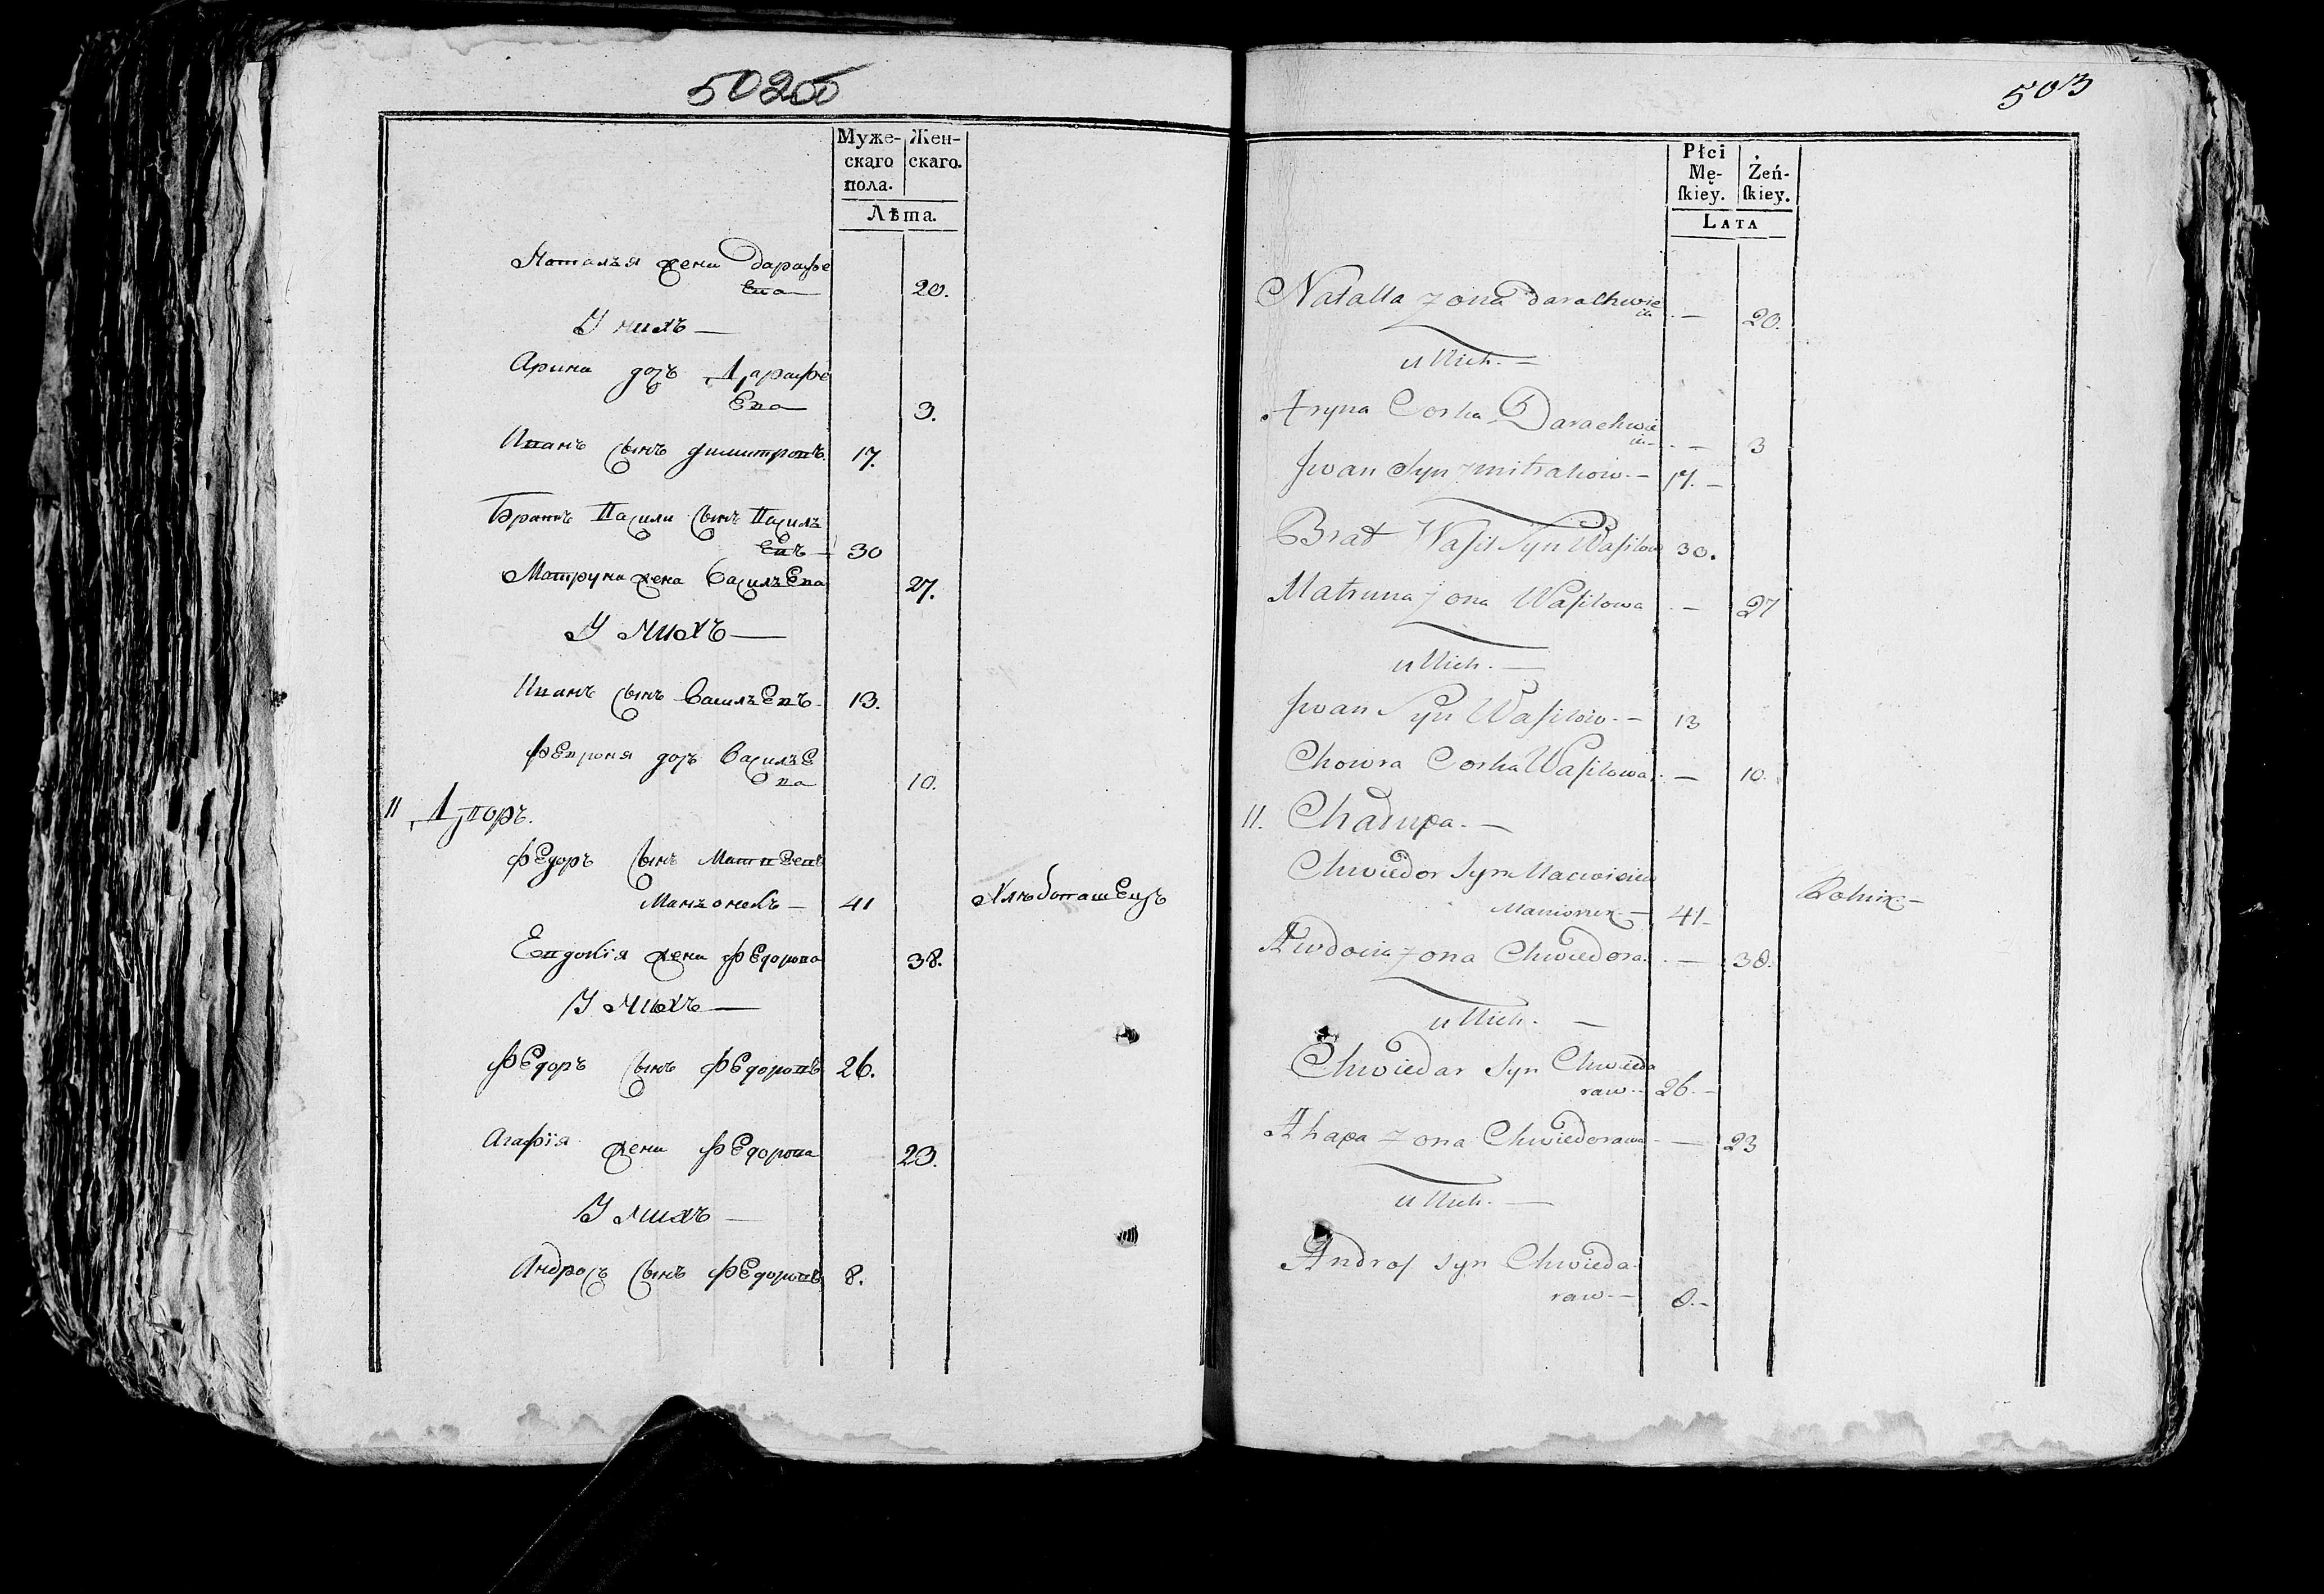 502об
Муже-
скаго
пола.
Жен-
скаго.
Лѣта.
Наталья жена Дарафѣе
ева 20.
У нихъ —
Арина дочь Дарафѣе
ева 3.
Иванъ сынъ Димитровъ. 17.
Братъ Васили сынъ Василь
евъ — 30
Матруна жена Васильева 27.
У нихъ —
Иванъ сынъ Васильевъ 13.
Феврония дочь Василье
ева 10.
11 Дворъ.
Федоръ сынъ Матвеевъ
— 41 Хлѣбопашецъ
Евдокія жена Федорова 38.
У нихъ —
Федоръ сынъ Федоровъ 26.
Агафія жена Федорова 23.
У нихъ —
Андросъ сынъ Федоровъ 8.
503
Płci
Mę-
ſkiey.
Żeń-
ſkiey.
LATA
Natalla zona Darachwie
— 20.
u Nich. —
Aryna Corka Darachwie
— 3
Jwan Syn zmitrakow. — 17. —
Brat Waſil Syn Waſilow 30.
Matruna zona Waſilowa — 27
u Nich. —
Jwan Syn Waſilow. — 13
Chowra Corka Waſilowa. — 10.
11. Chałupa. —
Chwiedor Syn Maciwieiew
— 41 — Rolnik —
Awdocia zona Chwiedora. — 38.
u Nich. —
Chwiedar Syn Chwieda
raw — 26. —
Ahapa zona Chwiedorawa — 23
u Nich. —
Androſ syn Chwieda-
raw. — 8. —